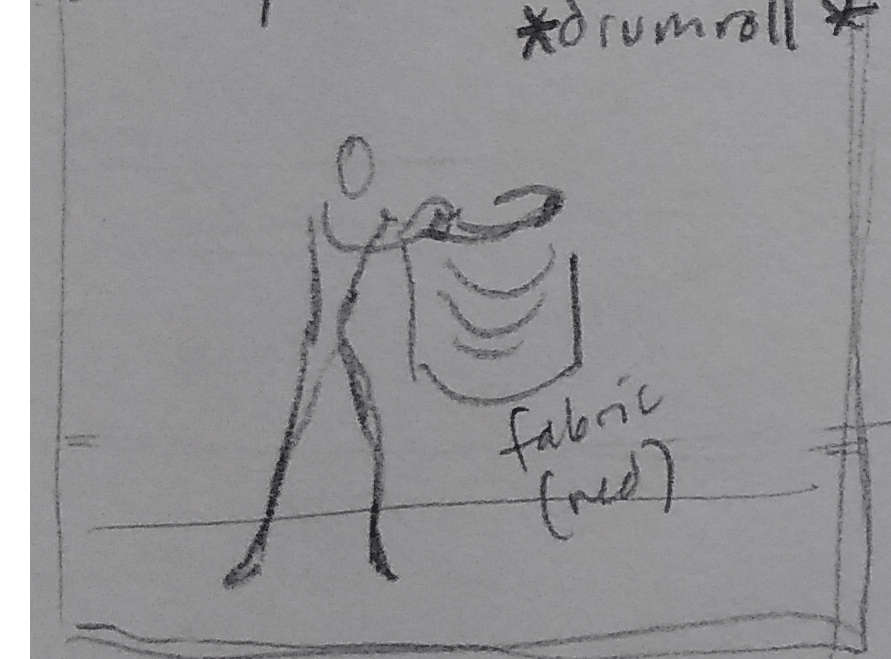 *drumroll *
fabric
(red)